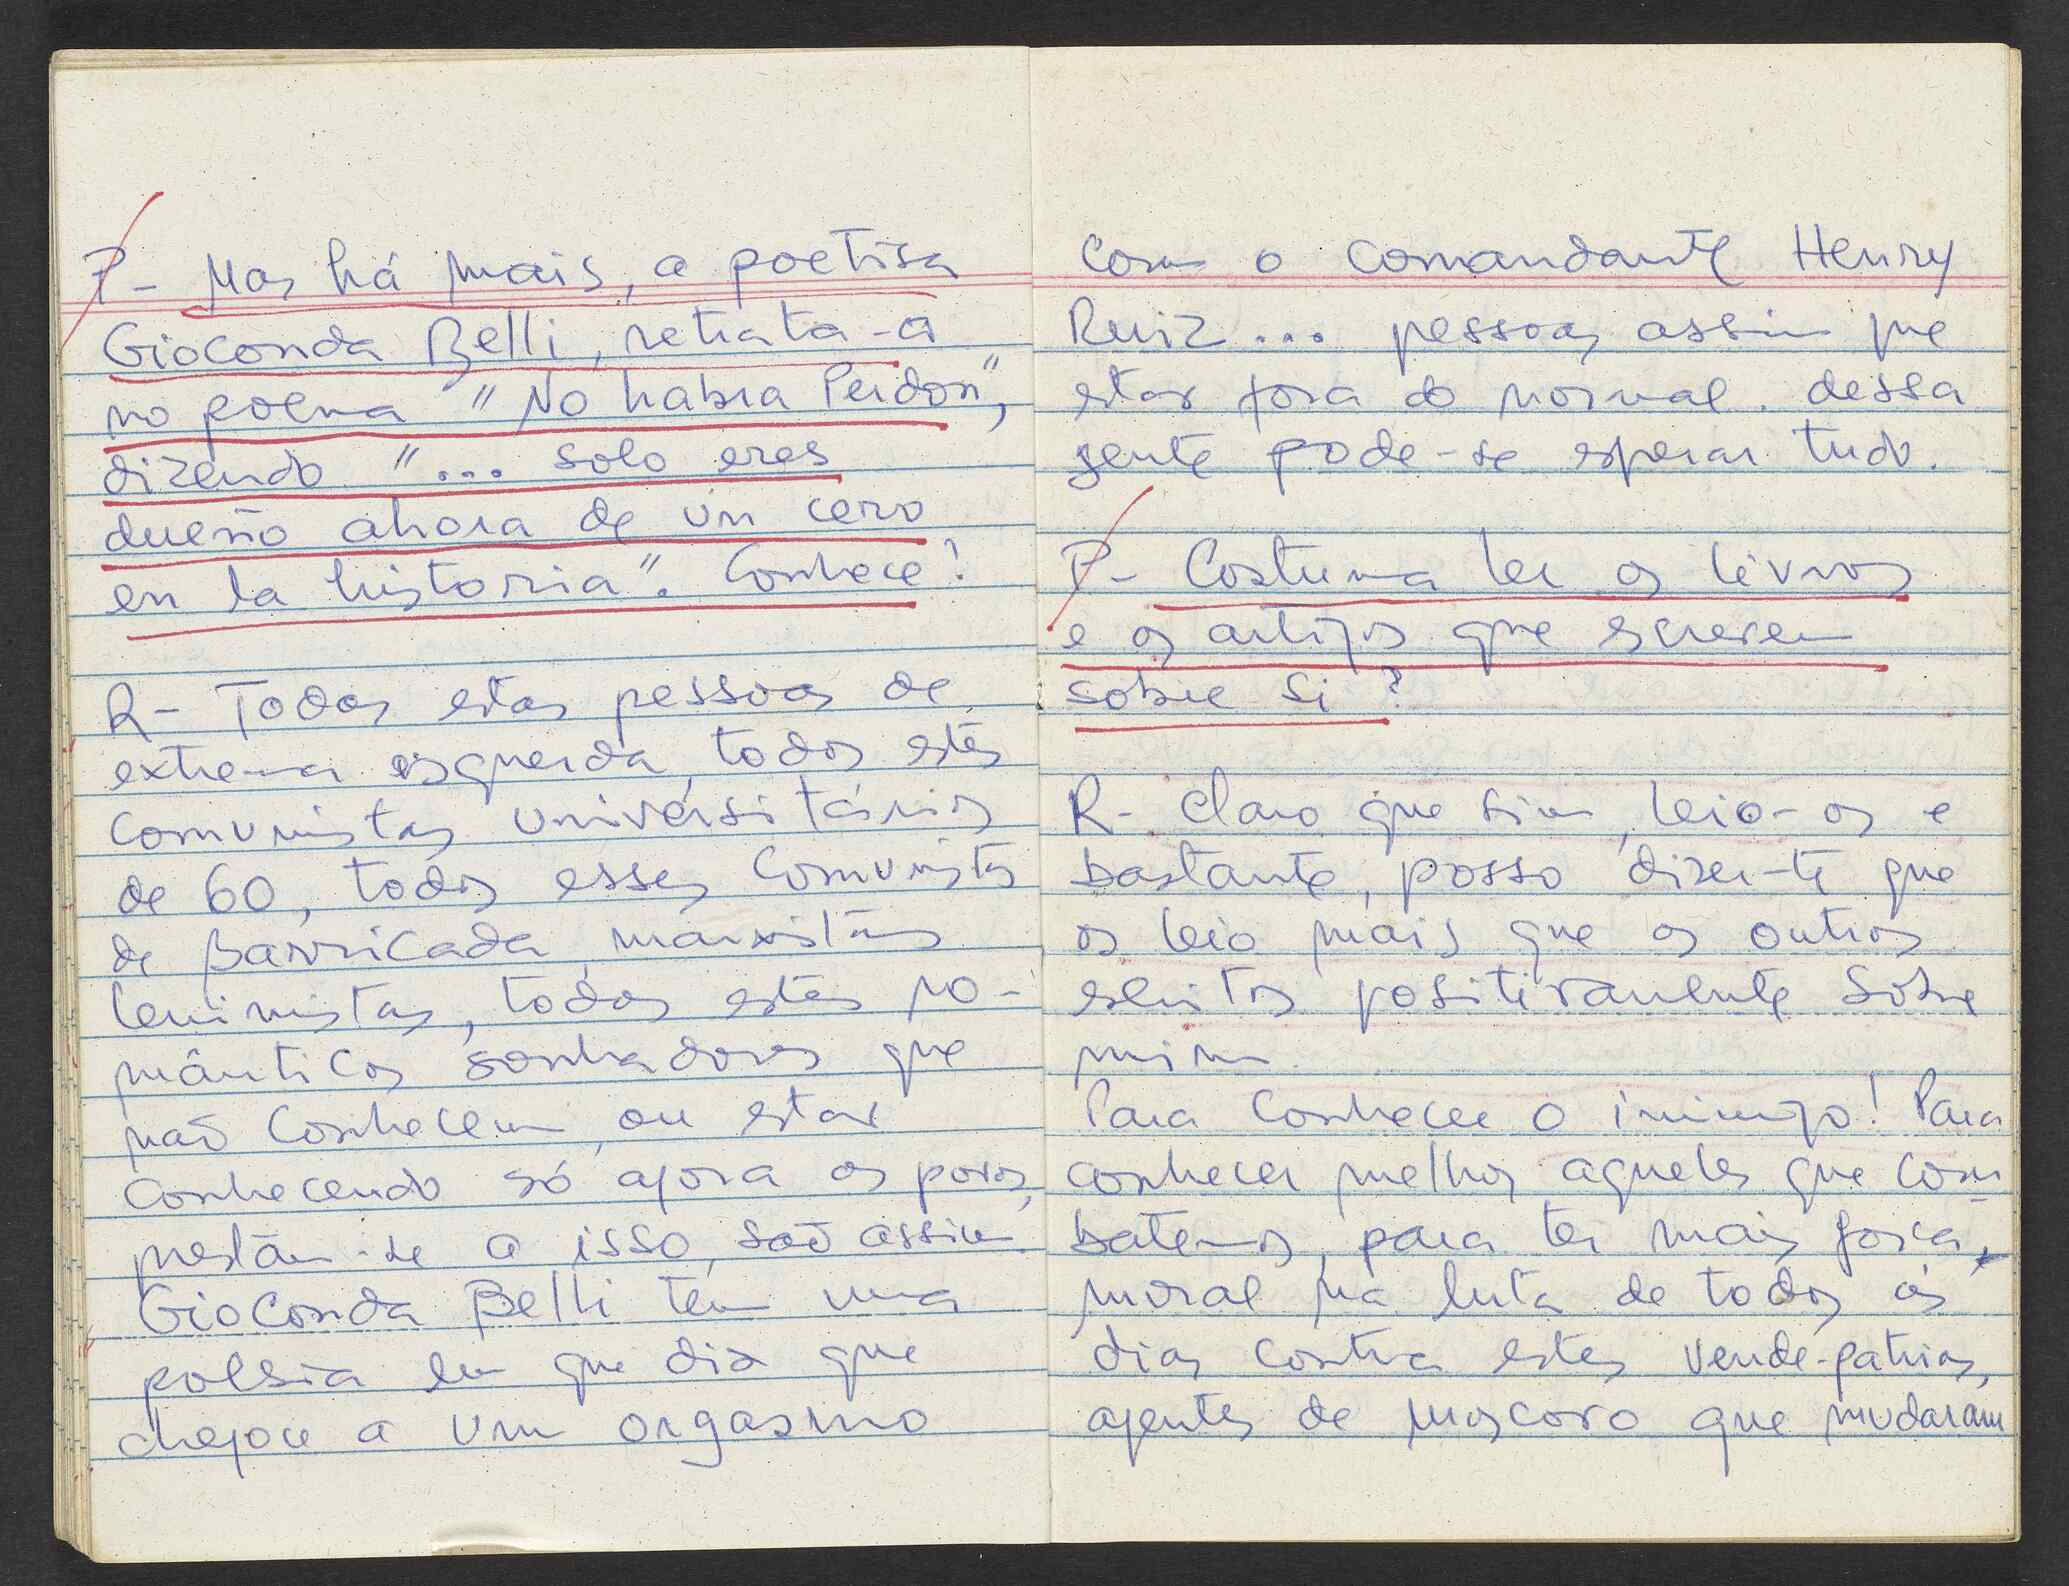 P- Mas há mais, a poetisa
Gioconda Belli, retrata-a
no poema "No habra Perdon",
dizendo "... solo eres
dueño ahora de un cero
en la historia". Conhece?
R- Todas estas pessoas de
extrema esquerda, todos estes
comunistas universitários
de 60, todos esses comunistas
de Barricada, marxistas
leninistas, todos estes ro-
mânticos sonhadores que
não conhecem, ou estar
conhecendo só agora os povos,
prestam-se a isso, são assim
Gioconda Belli tem uma
poesia em que diz que
chegou a um orgasmo
com o comandante Henry
Ruiz... pessoas assim que
estar fora do normal. dessa
gente pode-se esperar tudo.
P- Costuma ler os livros
e os artigos que escrevem
sobre si?
R- Claro que sim, leio-os e
bastante, posso dizer-te que
os leio mais que os outros
escritos positivamente sobre
mim
Para conhecer o inimigo! Para
conhecer melhor aqueles que com-
batemos, para ter mais força,
moral na luta de todos os
dias contra estes vende-patrias,
agentes de moscovo que mudaram